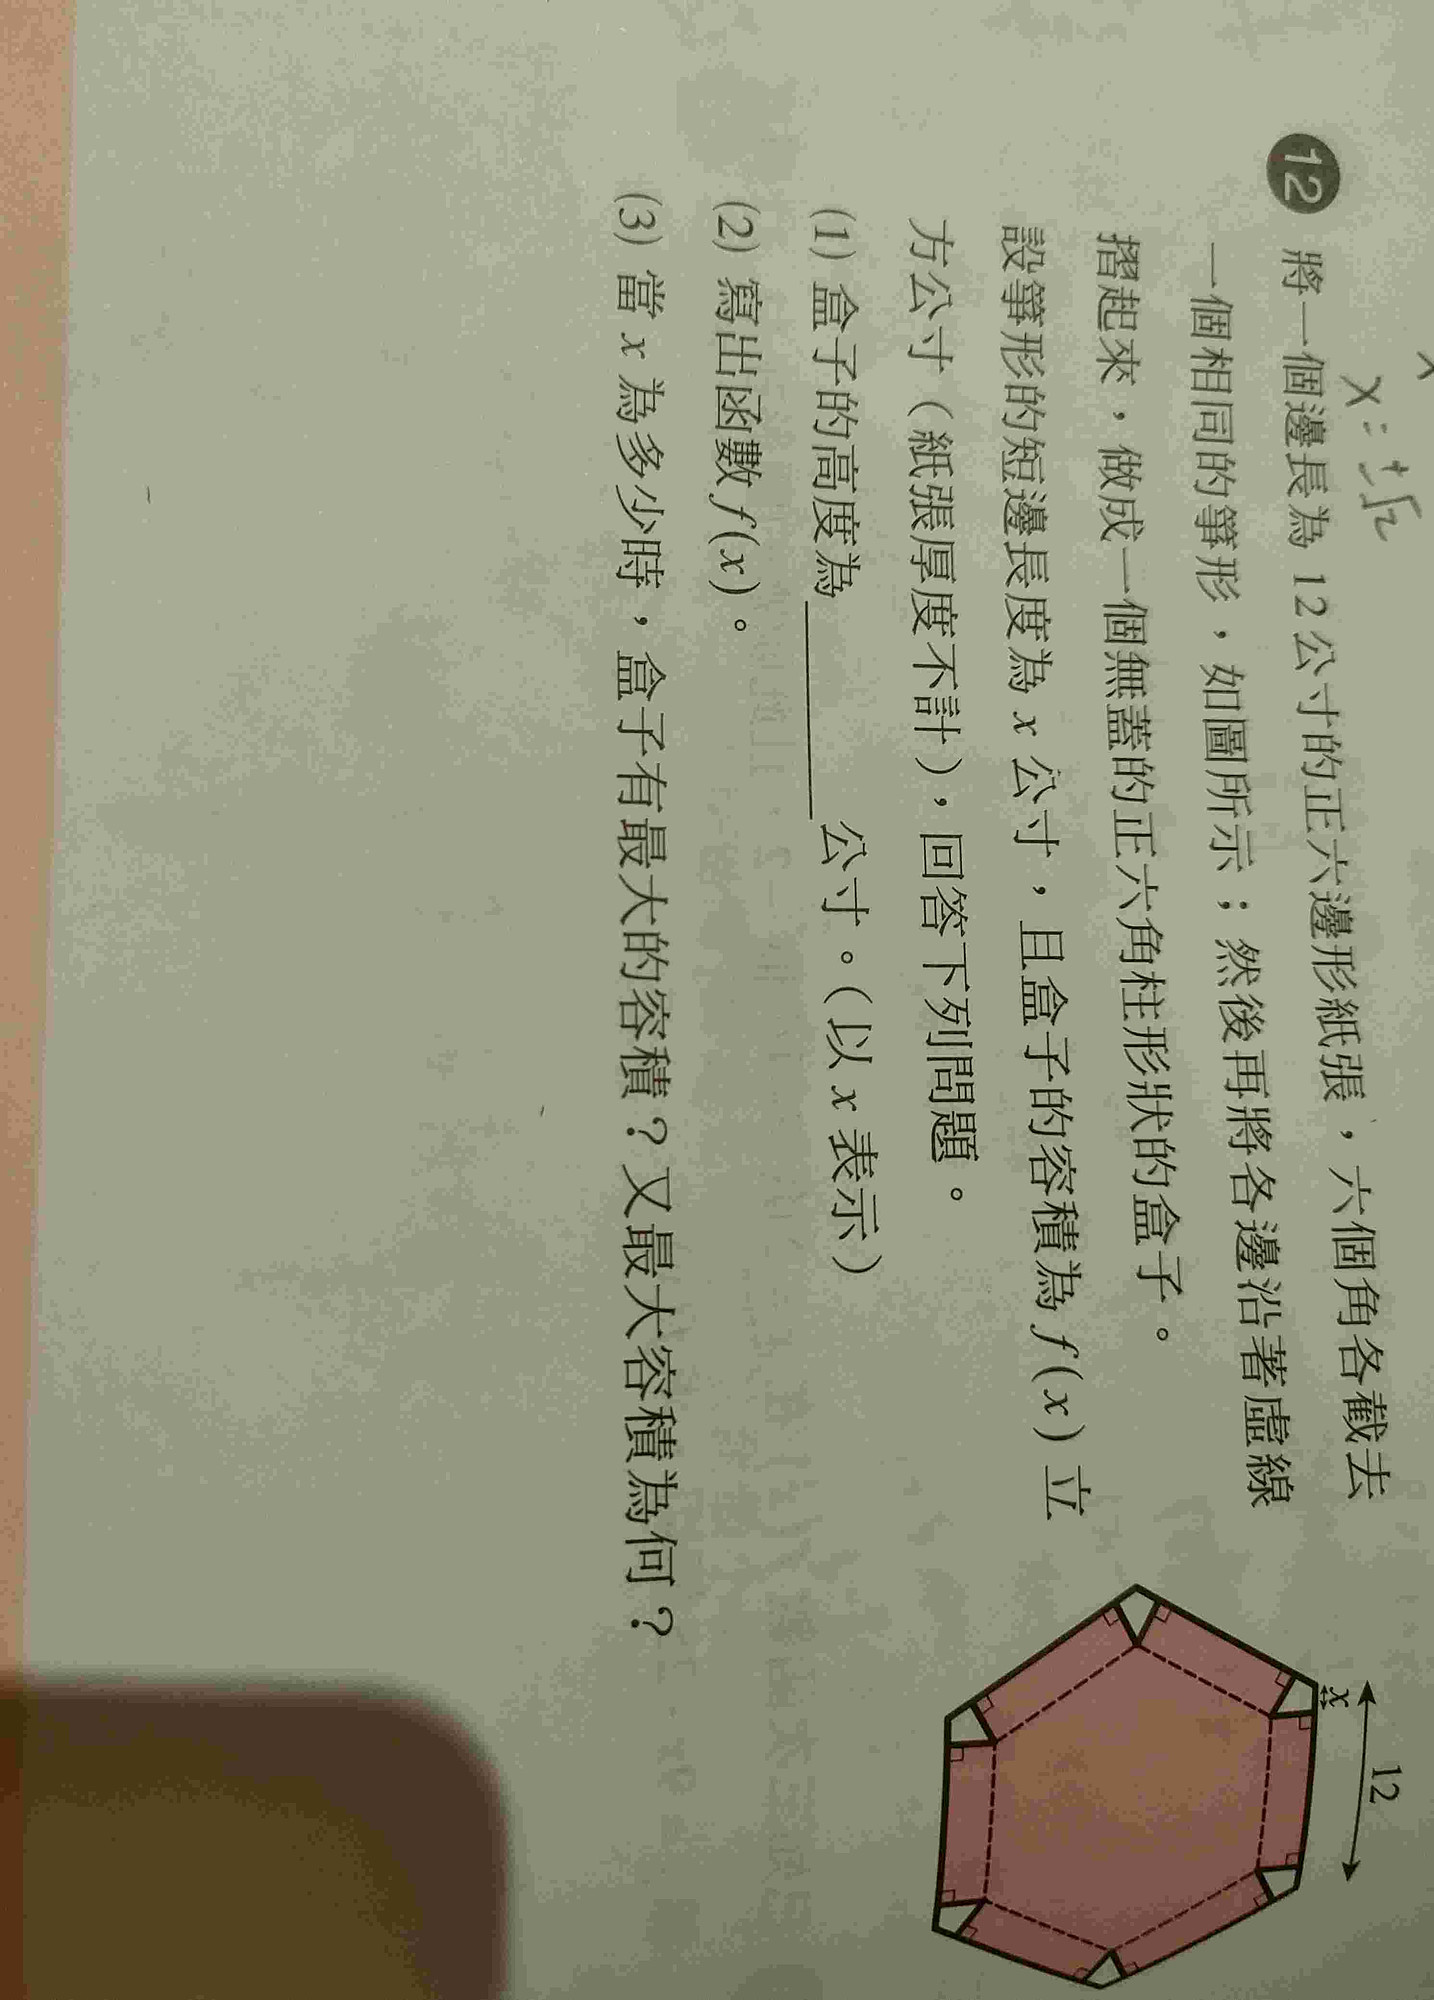 x = ±√2
12 將一個邊長為 12 公寸的正六邊形紙張，六個角各截去
一個相同的箏形，如圖所示；然後再將各邊沿著虛線
摺起來，做成一個無蓋的正六角柱形狀的盒子。
設箏形的短邊長度為 x 公寸，且盒子的容積為 f(x) 立
方公寸（紙張厚度不計），回答下列問題。
(1) 盒子的高度為________公寸。（以 x 表示）
(2) 寫出函數 f(x)。
(3) 當 x 為多少時，盒子有最大的容積？又最大容積為何？
12
x